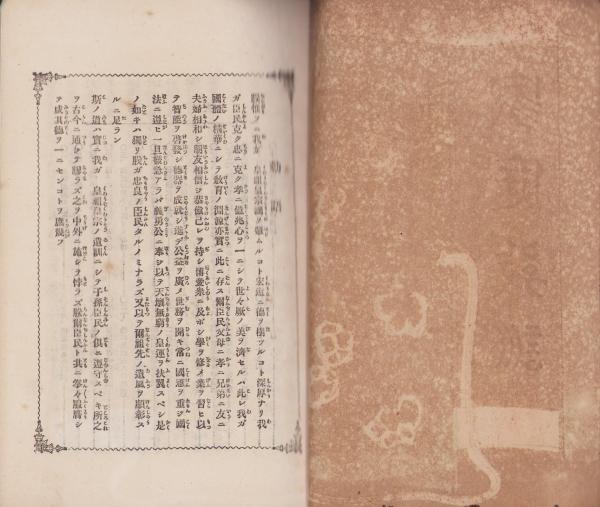 勅語
朕惟フニ我ガ　皇祖皇宗國ヲ肇ムルコト宏遠ニ德ヲ樹ツルコト深厚ナリ我
ガ臣民克ク忠ニ克ク孝ニ億兆心ヲ一ニシテ世々厥ノ美ヲ濟セルハ此レ我ガ
國體ノ精華ニシテ敎育ノ淵源亦實ニ此ニ存ス爾臣民父母ニ孝ニ兄弟ニ友ニ
夫婦相和シ朋友相信ジ恭儉己レヲ持シ博愛衆ニ及ボシ學ヲ修メ業ヲ習ヒ以
テ智能ヲ啓發シ德器ヲ成就シ進デ公益ヲ廣メ世務ヲ開キ常ニ國憲ヲ重ジ國
法ニ遵ヒ一旦緩急アラバ義勇公ニ奉ジ以テ天壤無窮ノ皇運ヲ扶翼スベシ是
ノ如キハ獨リ朕ガ忠良ノ臣民タルノミナラズ又以テ爾祖先ノ遺風ヲ顯彰ス
ルニ足ラン
斯ノ道ハ實ニ我ガ　皇祖皇宗ノ遺訓ニシテ子孫臣民ノ俱ニ遵守スベキ所之
ヲ古今ニ通ジテ謬ラズ之ヲ中外ニ施シテ悖ラズ朕爾臣民ト共ニ拳々服膺シ
テ咸其德ヲ一ニセンコトヲ庶幾フ